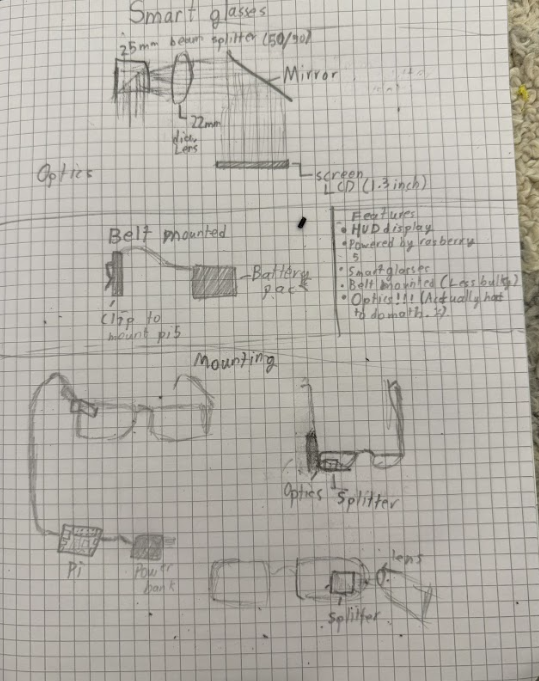 Smart glasses
25mm beam splitter (50/50)
Mirror
22mm
dia.
Lens
Optics
screen
LCD (1.3 inch)
Belt mounted
Battery
pack
Clip to
mount pi5
Features
• HUD display
• Powered by rasberry
5
• Smart glasses
• Belt mounted (Less bulky)
• Optics!!! (Actually had
to do math :)
Mounting
Optics
Splitter
Pi
Power
bank
Lens
Splitter